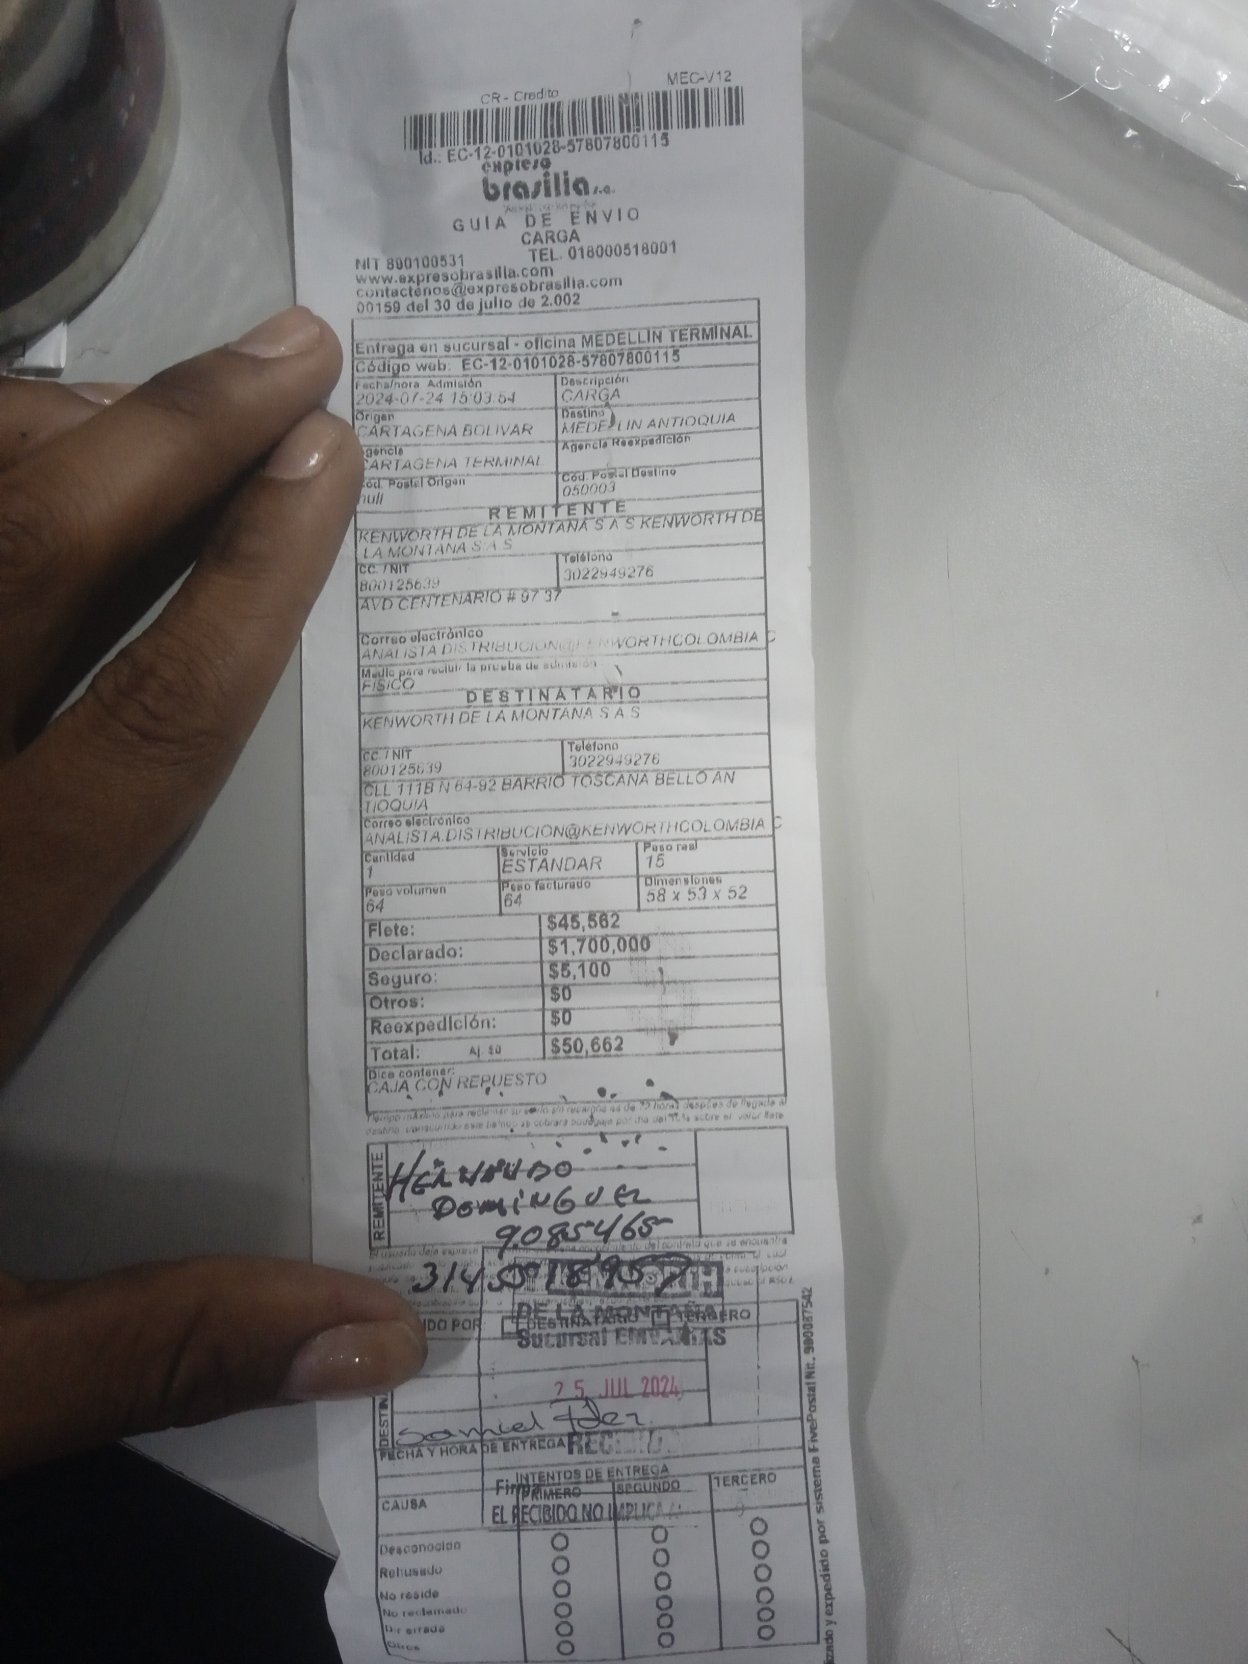 CR - Credito
MEC-V12
Id.: EC-12-0101028-57807800115
expreso
brasilia s.a.
GUIA DE ENVIO
CARGA
NIT 890100531
TEL. 018000518001
www.expresobrasilia.com
contactenos@expresobrasilia.com
00159 del 30 de julio de 2.002
Entrega en sucursal - oficina MEDELLIN TERMINAL
Código web: EC-12-0101028-57807800115
Fecha/hora Admisión
2024-07-24 15:03:54
Descripción
CARGA
Origen
CARTAGENA BOLIVAR
Destino
MEDELLIN ANTIOQUIA
gencia
CARTAGENA TERMINAL
Agencia Reexpedición
od. Postal Origen
null
Cód. Postal Destino
050003
REMITENTE
KENWORTH DE LA MONTANA S A S KENWORTH DE
LA MONTANA S.A.S
CC. / NIT
800125639
Teléfono
3022949276
AVD CENTENARIO # 97 37
Correo electrónico
ANALISTA DISTRIBUCION@KENWORTHCOLOMBIA C
Medio para recibir la prueba de admisión
FISICO
DESTINATARIO
KENWORTH DE LA MONTANA S A S
CC. / NIT
800125639
Teléfono
3022949276
CLL 111B N 64-92 BARRIO TOSCANA BELLO AN
TIOQUIA
Correo electrónico
ANALISTA.DISTRIBUCION@KENWORTHCOLOMBIA C
Cantidad
1
Servicio
ESTANDAR
Peso real
15
Peso volumen
64
Peso facturado
64
Dimensiones
58 x 53 x 52
Flete: $45,562
Declarado: $1,700,000
Seguro: $5,100
Otros: $0
Reexpedición: $0
Total: Aj. $0 $50,662
Dice contener:
CAJA CON REPUESTO
REMITENTE
HERNANDO
DOMINGUEZ
9085465
KENWORTH
DE LA MONTAÑA
DO POR: DESTINATARIO TERCERO
Sucursal
25 JUL 2024
DESTIN
Samuel
FECHA Y HORA DE ENTREGA
RECIBIDO
INTENTOS DE ENTREGA
Firma
CAUSA
PRIMERO
SEGUNDO
TERCERO
EL RECIBIDO NO IMPLICA
Desconocido
Rehusado
No reside
No reclamado
Dir errada
Otros
zado y expedido por sistema FivePostal Nit. 900087542